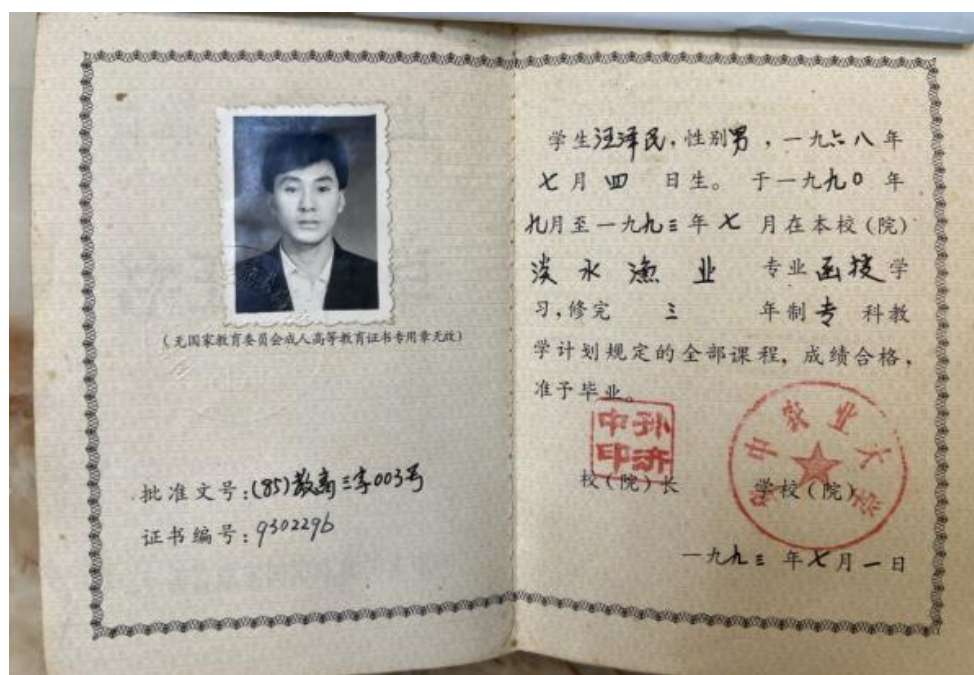 (无国家教育委员会成人高等教育证书专用章无效)
批准文号:(85)教高三字003号
证书编号:9302296
学生汪泽民,性别男,一九六八年
七月四日生。于一九九0年
九月至一九九三年七月在本校(院)
淡水渔业专业函授学
习,修完三年制专科教
学计划规定的全部课程,成绩合格,
准予毕业。
孙济中印
华中农业大学
校(院)长 学校(院)
一九九三年七月一日